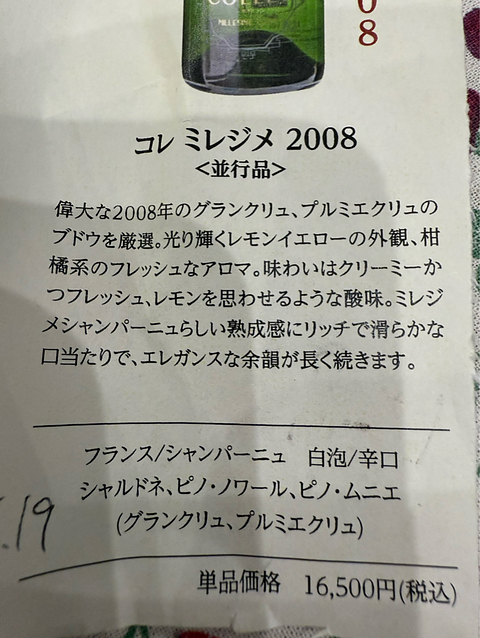 MILLES
08
コレ ミレジメ 2008
<並行品>
偉大な2008年のグランクリュ、プルミエクリュの
ブドウを厳選。光り輝くレモンイエローの外観、柑
橘系のフレッシュなアロマ。味わいはクリーミーか
つフレッシュ、レモンを思わせるような酸味。ミレジ
メシャンパーニュらしい熟成感にリッチで滑らかな
口当たりで、エレガンスな余韻が長く続きます。
フランス/シャンパーニュ 白泡/辛口
シャルドネ、ピノ・ノワール、ピノ・ムニエ
(グランクリュ、プルミエクリュ)
.19
単品価格 16,500円(税込)